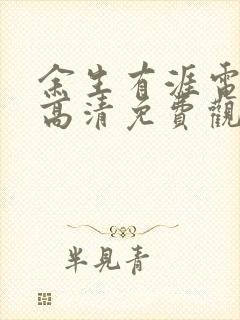 余生有涯電
高清免費觀
半見青